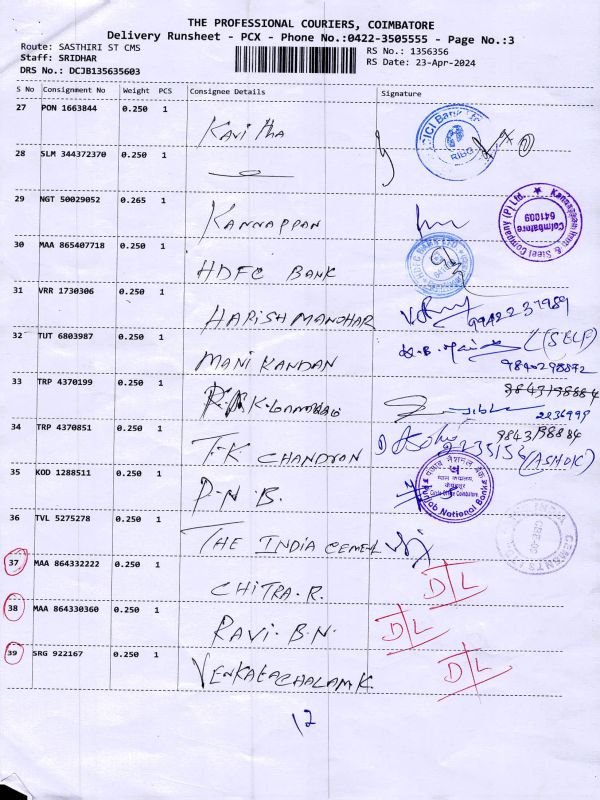 THE PROFESSIONAL COURIERS, COIMBATORE
Delivery Runsheet - PCX - Phone No.:0422-3505555 - Page No.:3
Route: SASTHIRI ST CMS RS No.: 1356356
Staff: SRIDHAR RS Date: 23-Apr-2024
DRS No.: DCJB135635603
S No Consignment No Weight PCS Consignee Details Signature
27 PON 1663844 0.250 1 Kavitha ICICI Bank RIBG
28 SLM 344372370 0.250 1
29 NGT 50029052 0.265 1 KANNAPPAN Kannappan Iron & Steel Company (P) Ltd. Coimbatore 641009
30 MAA 865407718 0.250 1 HDFC BANK HDFC BANK LTD
31 VRR 1730306 0.250 1 HARISH MANOHAR 9942237989
32 TUT 6803987 0.250 1 MANI KANDAN (SELF)
33 TRP 4370199 0.250 1 2236999
34 TRP 4370851 0.250 1 T.K CHANDRON (ASHOK)
35 KOD 1288511 0.250 1 P.N.B. पंजाब नैशनल बैंक Punjab National Bank Circle Office Coimbatore
36 TVL 5275278 0.250 1 THE INDIA CEMENT
37 MAA 864332222 0.250 1 CHITRA.R. D L
38 MAA 864330360 0.250 1 RAVI.B.N. D L
39 SRG 922167 0.250 1 VENKATACHALAM K. D L
12